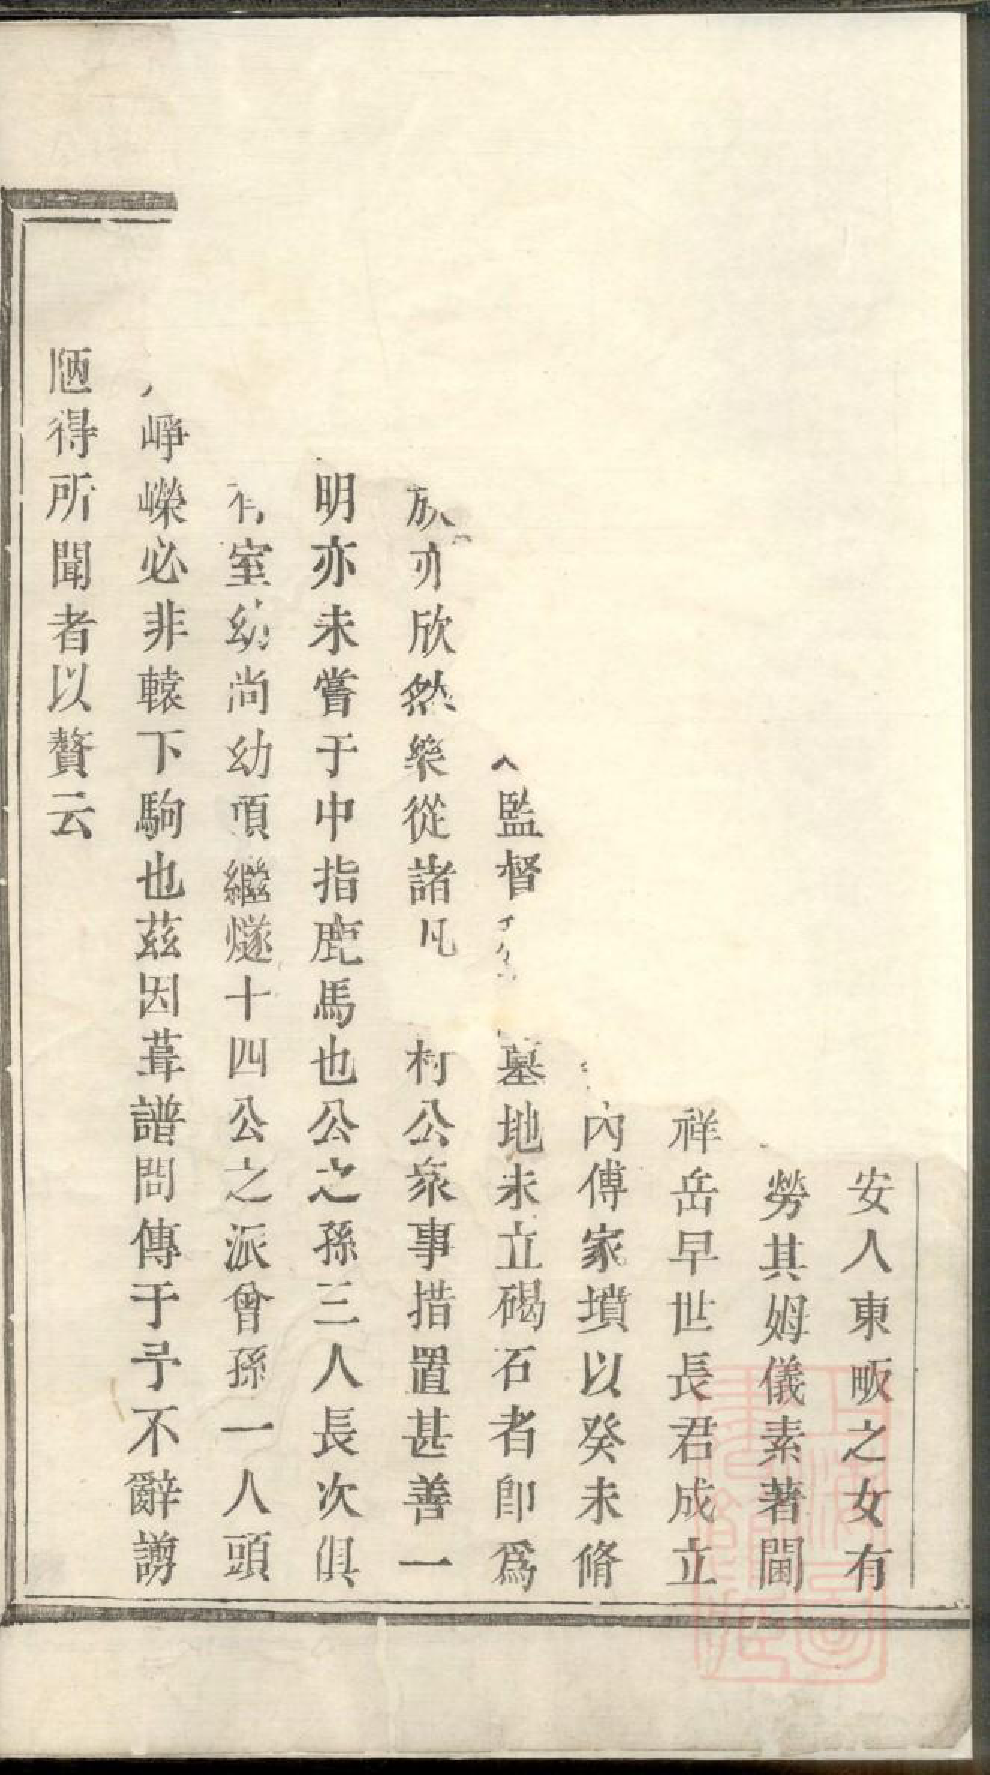 安人東畈之女有
勞其姆儀素著閫
祥岳早世長君成立
內傅家墳以癸未脩
監督墓地未立碣石者卽爲
族亦欣然樂從諸凡村公衆事措置甚善一
明亦未嘗于中指鹿馬也公之孫三人長次俱
有室幼尚幼頂繼燧十四公之派曾孫一人頭
崢嶸必非轅下駒也茲因葺譜問傳于予不辭譾
陋得所聞者以贅云